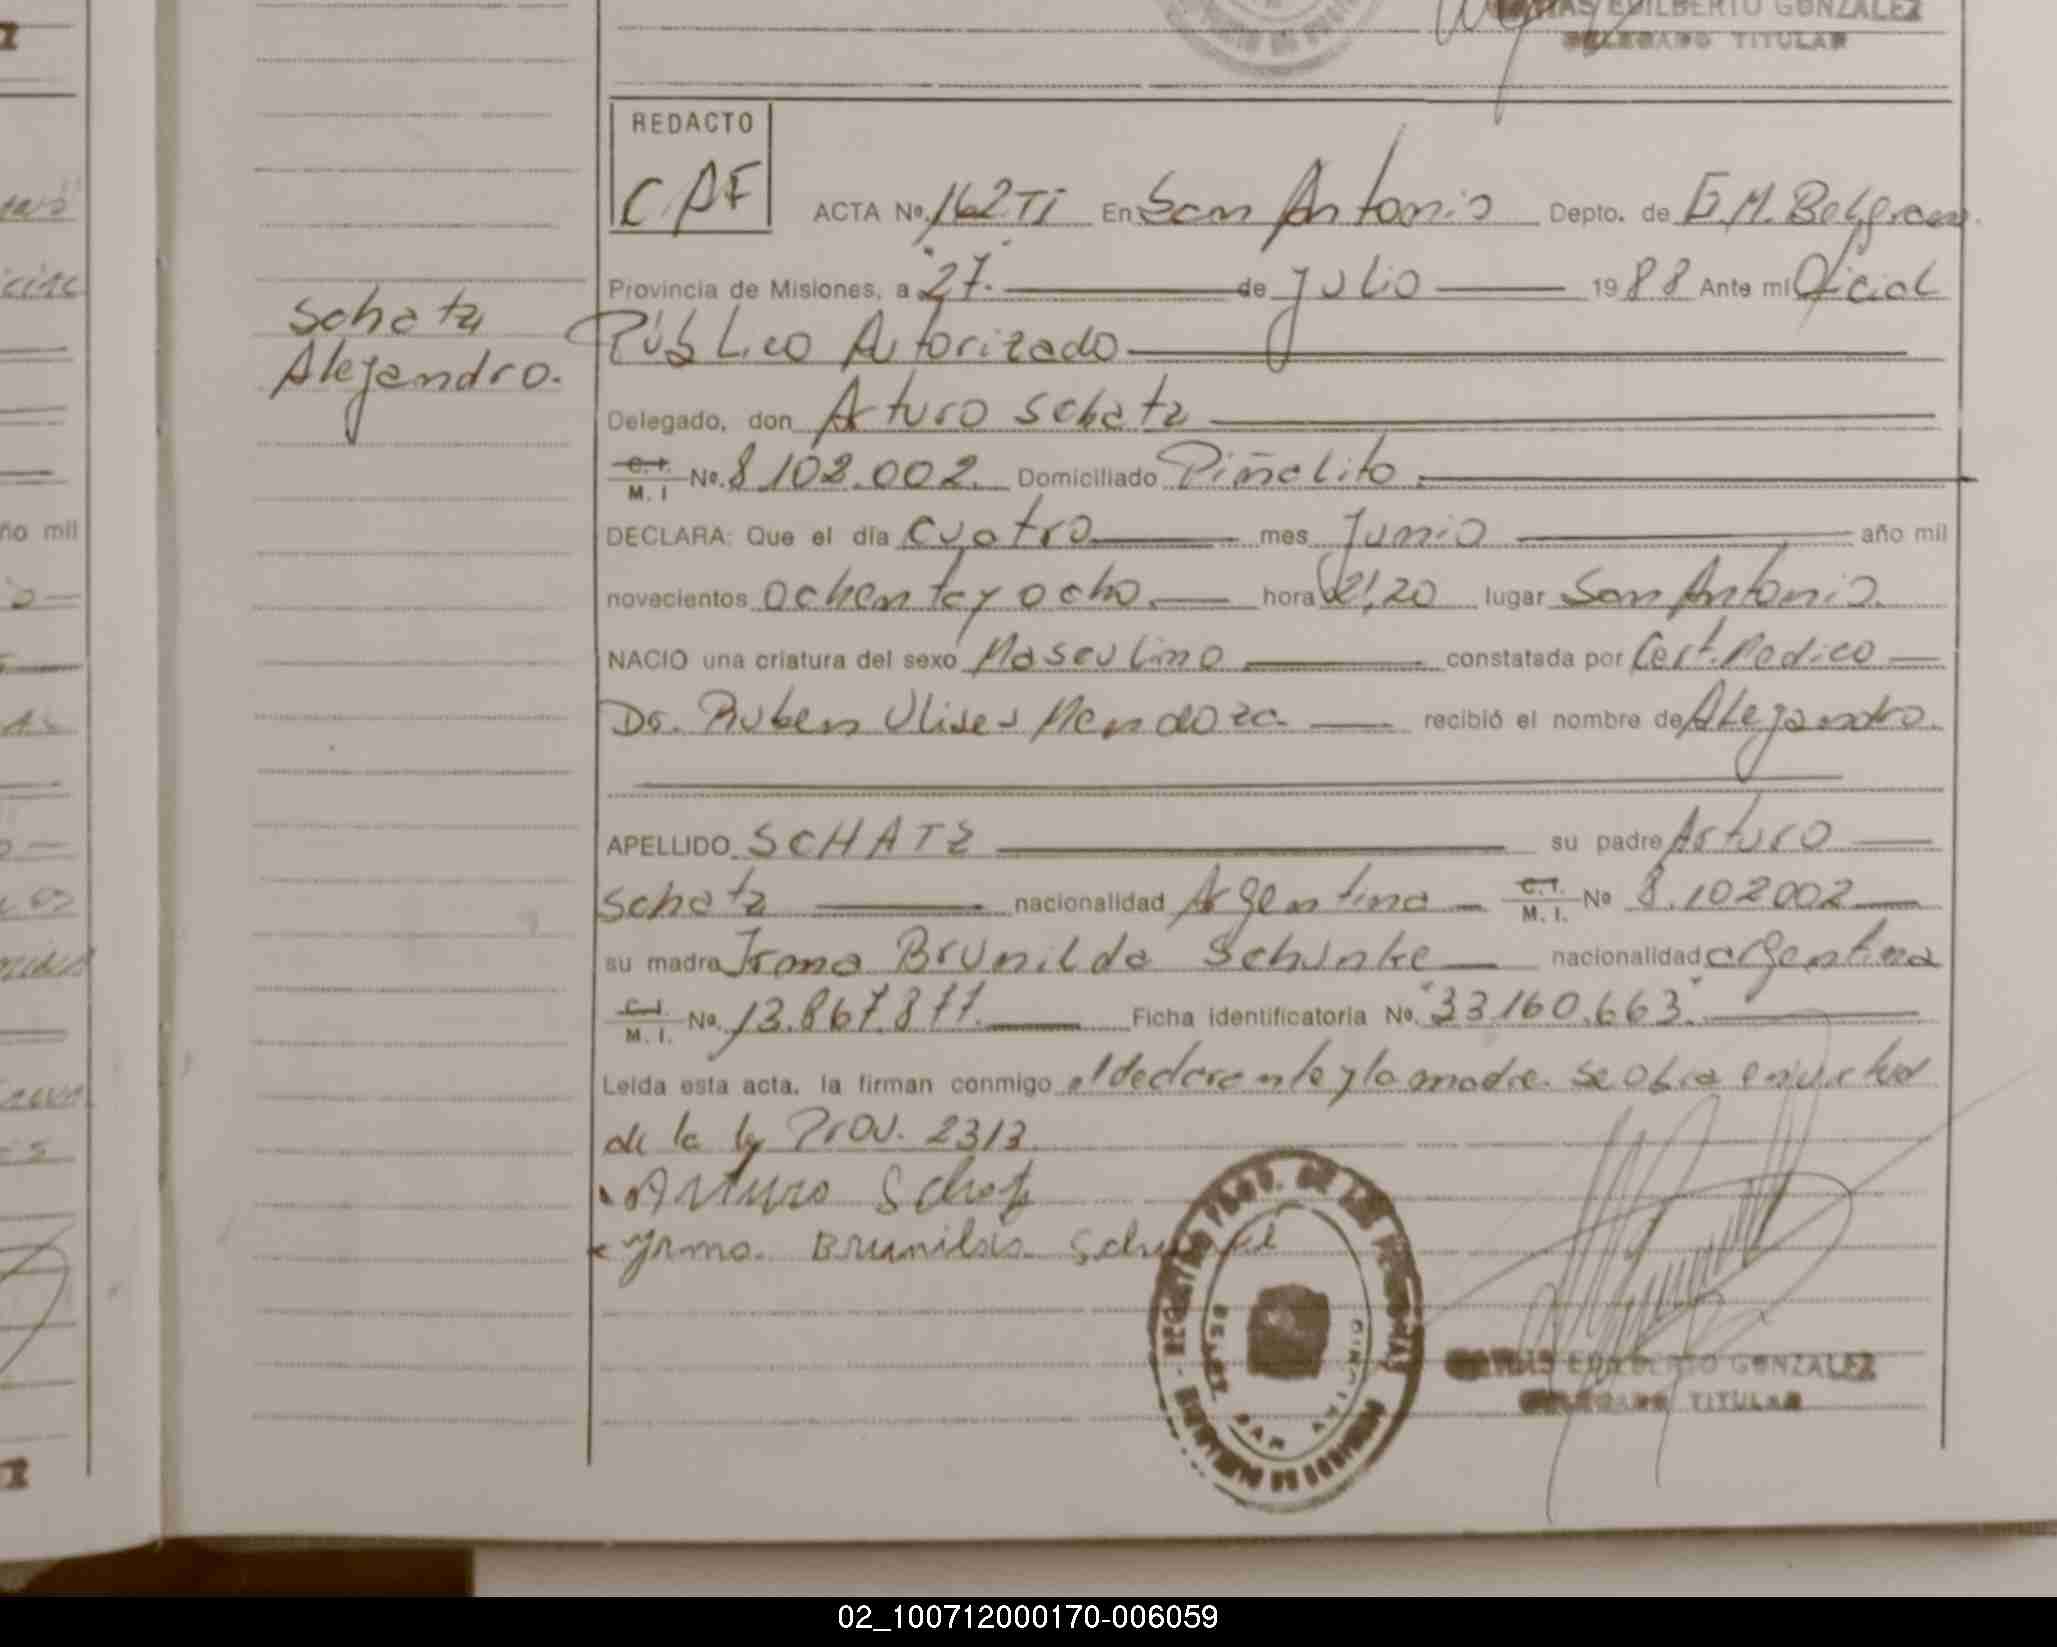 EDILBERTO GONZALEZ
DELEGADO TITULAR
REDACTO
CAF
ACTA Nº. 162 TI En San Antonio Depto. de G.M. Belgrano.
Provincia de Misiones, a "27." de julio 1988 Ante mi Oficial
Público Autorizado
Schatz
Alejandro.
Delegado, don Arturo Schatz
C.I. M. I Nº. 8.102.002. Domiciliado Piñalito.
DECLARA: Que el día cuatro mes Junio año mil
novecientos ochenta y ocho. hora 21,20 lugar San Antonio.
NACIO una criatura del sexo Masculino constatada por Cert. Medico
Dr. Ruben Ulises Mendoza recibió el nombre de Alejandro.
APELLIDO SCHATZ su padre Arturo
Schatz nacionalidad Argentina C.I. M. I. Nº 8.102002
su madre Irma Brunilda Schunke nacionalidad argentina
C.I. M. I. Nº. 13.867.877. Ficha identificatoria Nº. "33.160.663."
Leida esta acta, la firman conmigo el declarante y la madre. Se obra en virtud
de la ley Prov. 2313.
Arturo Schatz
Yrma. Brunilda
EDILBERTO GONZALEZ
DELEGADO TITULAR
ño mil
02_100712000170-006059